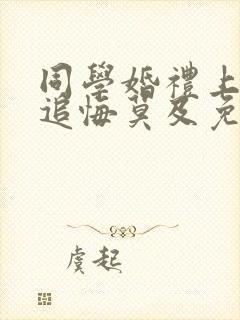 同學婚禮上
追悔莫及免
虞起